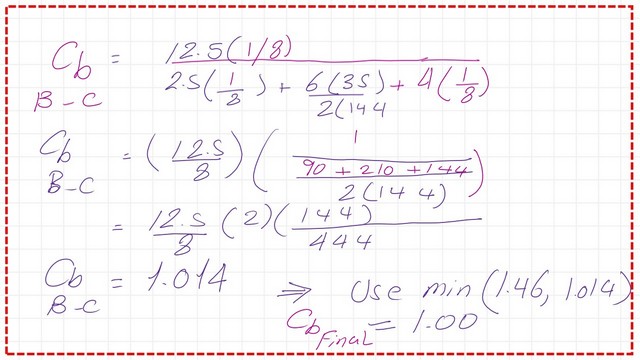 Cb B-C = 12.5(1/8) / (2.5(1/8) + 6(35)/2(144 + 4(1/8))
Cb B-C = (12.5/8) (1 / ((90 + 210 + 144) / 2(144)))
= 12.5/8 (2) (144)/444
Cb B-C = 1.014 ⇒ Use min (1.46, 1.014)
Cb Final = 1.00